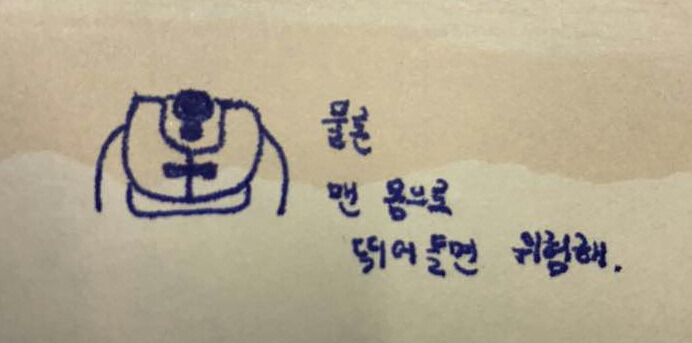 물론
맨 몸으로
뛰어들면 위험해.